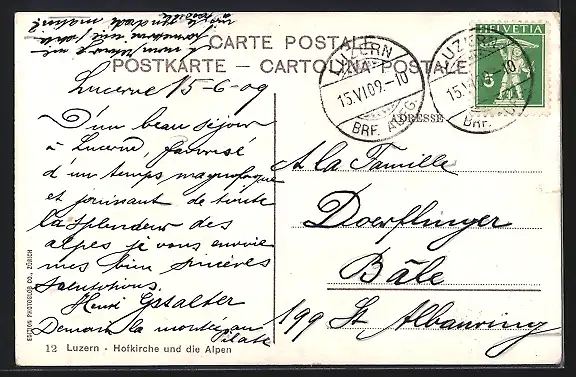 CARTE POSTALE
POSTKARTE — CARTOLINA POSTALE
HELVETIA
5
LUZERN
15.VI.09.-10
BRF. AUFG.
LUZERN
15.VI.09.-10
BRF.
ADRESSE
Lucerne 15-6-09
D'un beau séjour
à Lucerne favorisé
d'un temps magnifique
et jouissant de toute
la splendeur des
alpes je vous envoie
mes bien sincères
salutations.
Henri Gstalter
Demain la montée au
Pilate
A la Famille
Doerflinger
Bâle
199 St Albanring
EDITION PHOTOGLOB CO., ZÜRICH
12 Luzern - Hofkirche und die Alpen